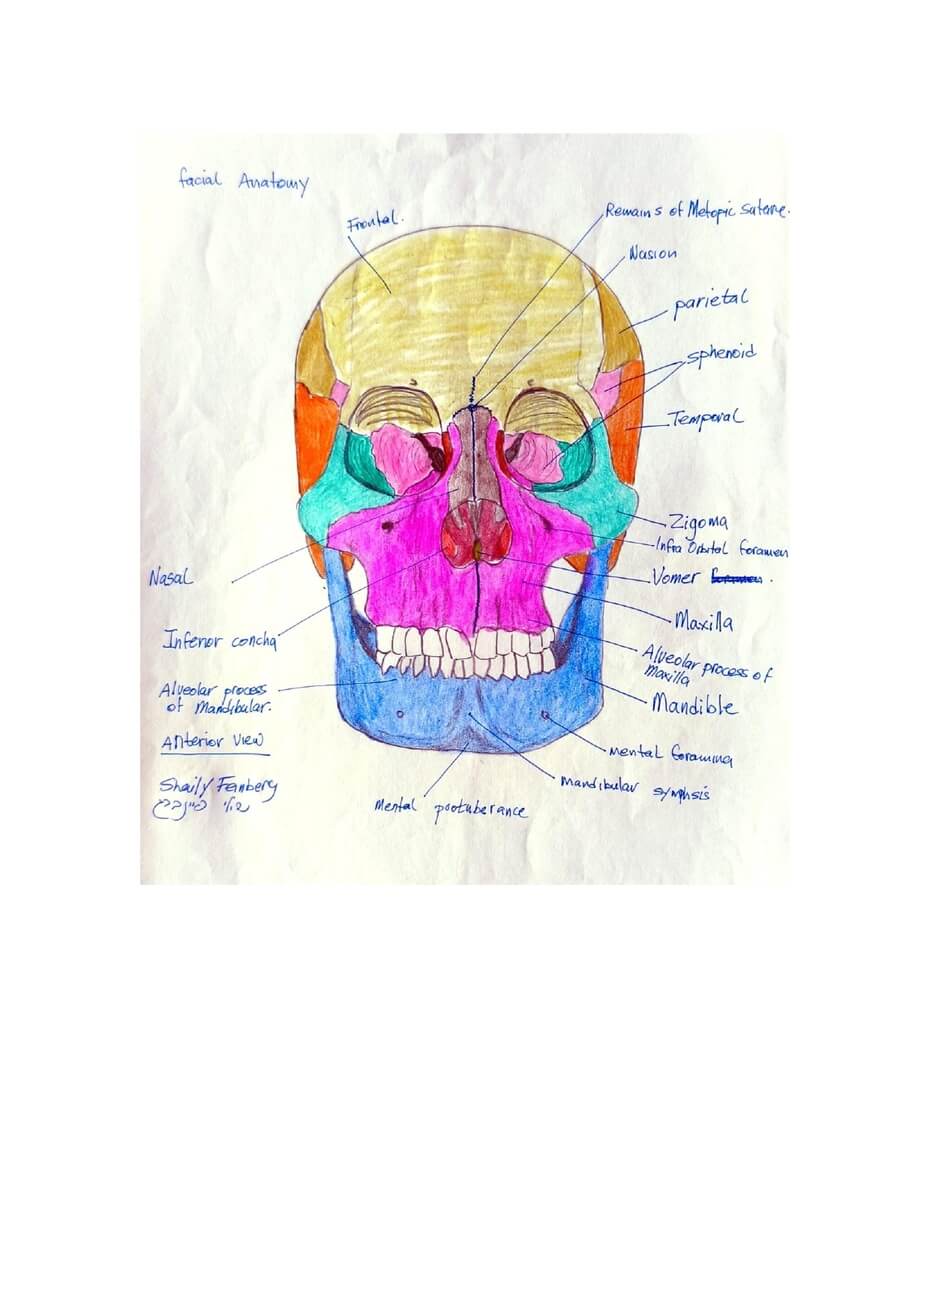 facial Anatomy
Frontal.
Remains of Metopic Suterre.
Nasion
parietal
sphenoid
Temporal
Zigoma
Infra Orbital foramen
Nasal
Vomer
Inferior concha
Maxilla
Alveolar process of
maxilla
Alveolar process
of Mandibular.
Mandible
Anterior View
mental foramina
Shaily Feinberg
שולי פיינברג
mandibular symphsis
Mental protuberance